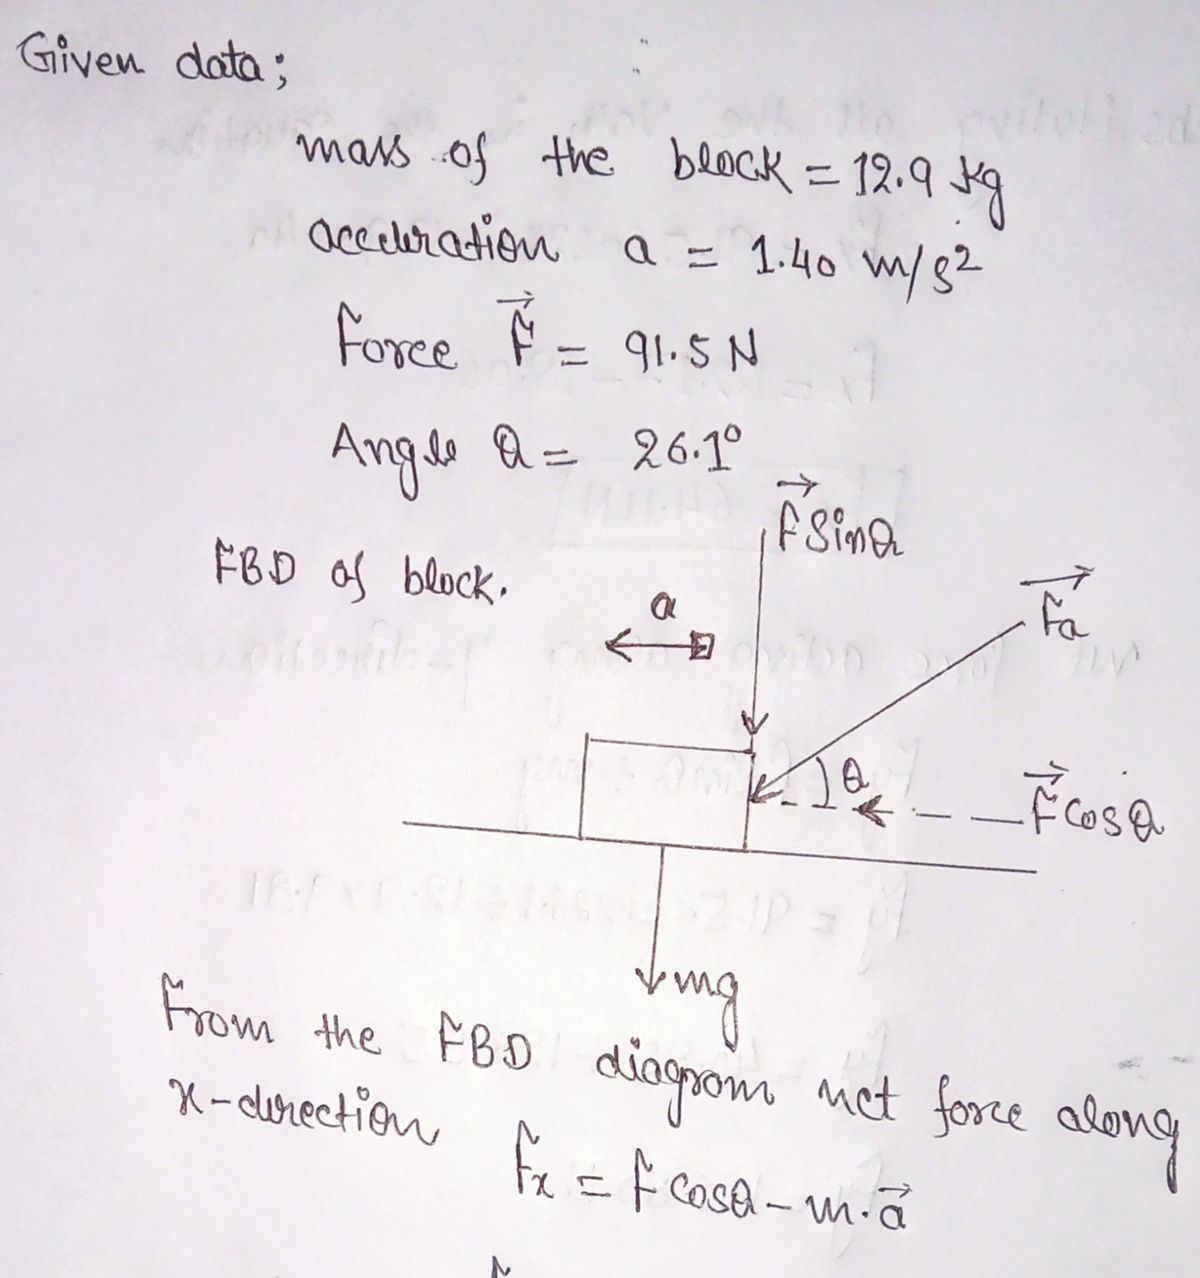 Given data;
mass of the block = 12.9 kg
acceleration a = 1.40 m/s²
Force F⃗ = 91.5 N
Angle θ = 26.1°
F⃗ Sinθ
FBD of block.
a
F⃗a
θ
F⃗ cosθ
mg
From the FBD diagrom net force along
x-direction
Fx = F cosθ - m.a⃗